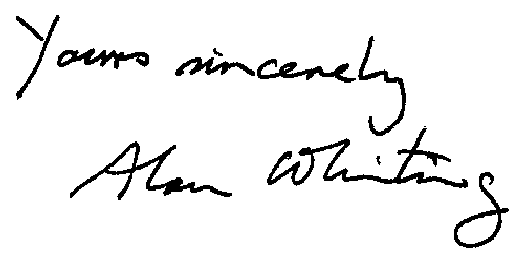 Yours sincerely
Alan Whiting